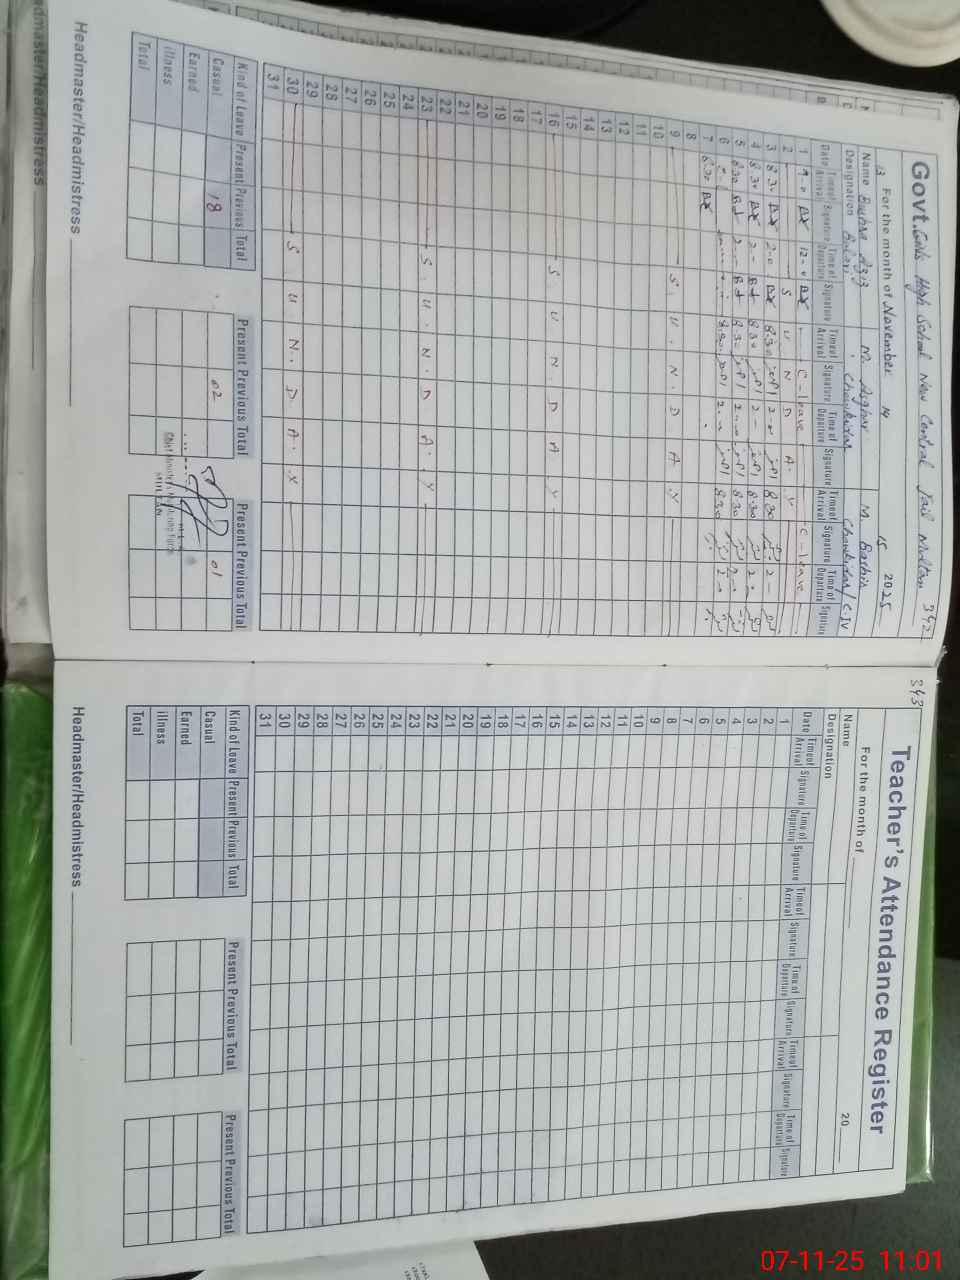 Govt. Girls High School New Central Jail Multan 342
13 For the month of November 14 15 2025
Name Bushra Aziz M. Asghar M. Bashir
Designation Chowkidar Chowkidar / C.IV
Date Time of Arrival Signature Time of Departure Signature Time of Arrival Signature Time of Departure Signature Time of Arrival Signature Time of Departure Signature
1 9-0 12-0 C-leave C-leave
2 S U N D A Y
3 8.30 2-0 8.30 2-0 8.30 2-
4 8.30 2- 8.30 2- 8.30 2-
5 8.30 2- 8.30 2- 8.30 2-
6 8.30 2- 8.30
7 8.30
8
9 S. U. N. D A Y
10
11
12
13
14
15
16 S U N. D A Y
17
18
19
20
21
22
23 S. U. N. D A. Y
24
25
26
27
28
29
30 S U N. D A. Y
31
Kind of Leave Present Previous Total Present Previous Total Present Previous Total
Casual 18 02 01
Earned
illness
Total
Chief Minister's Monitoring Force
MULTAN
Headmaster/Headmistress
Headmaster/Headmistress
343
Teacher's Attendance Register
For the month of 20
Name
Designation
Date Time of Arrival Signature Time of Departure Signature Time of Arrival Signature Time of Departure Signature Time of Arrival Signature Time of Departure Signature
1
2
3
4
5
6
7
8
9
10
11
12
13
14
15
16
17
18
19
20
21
22
23
24
25
26
27
28
29
30
31
Kind of Leave Present Previous Total Present Previous Total Present Previous Total
Casual
Earned
illness
Total
Headmaster/Headmistress
07-11-25 11:01